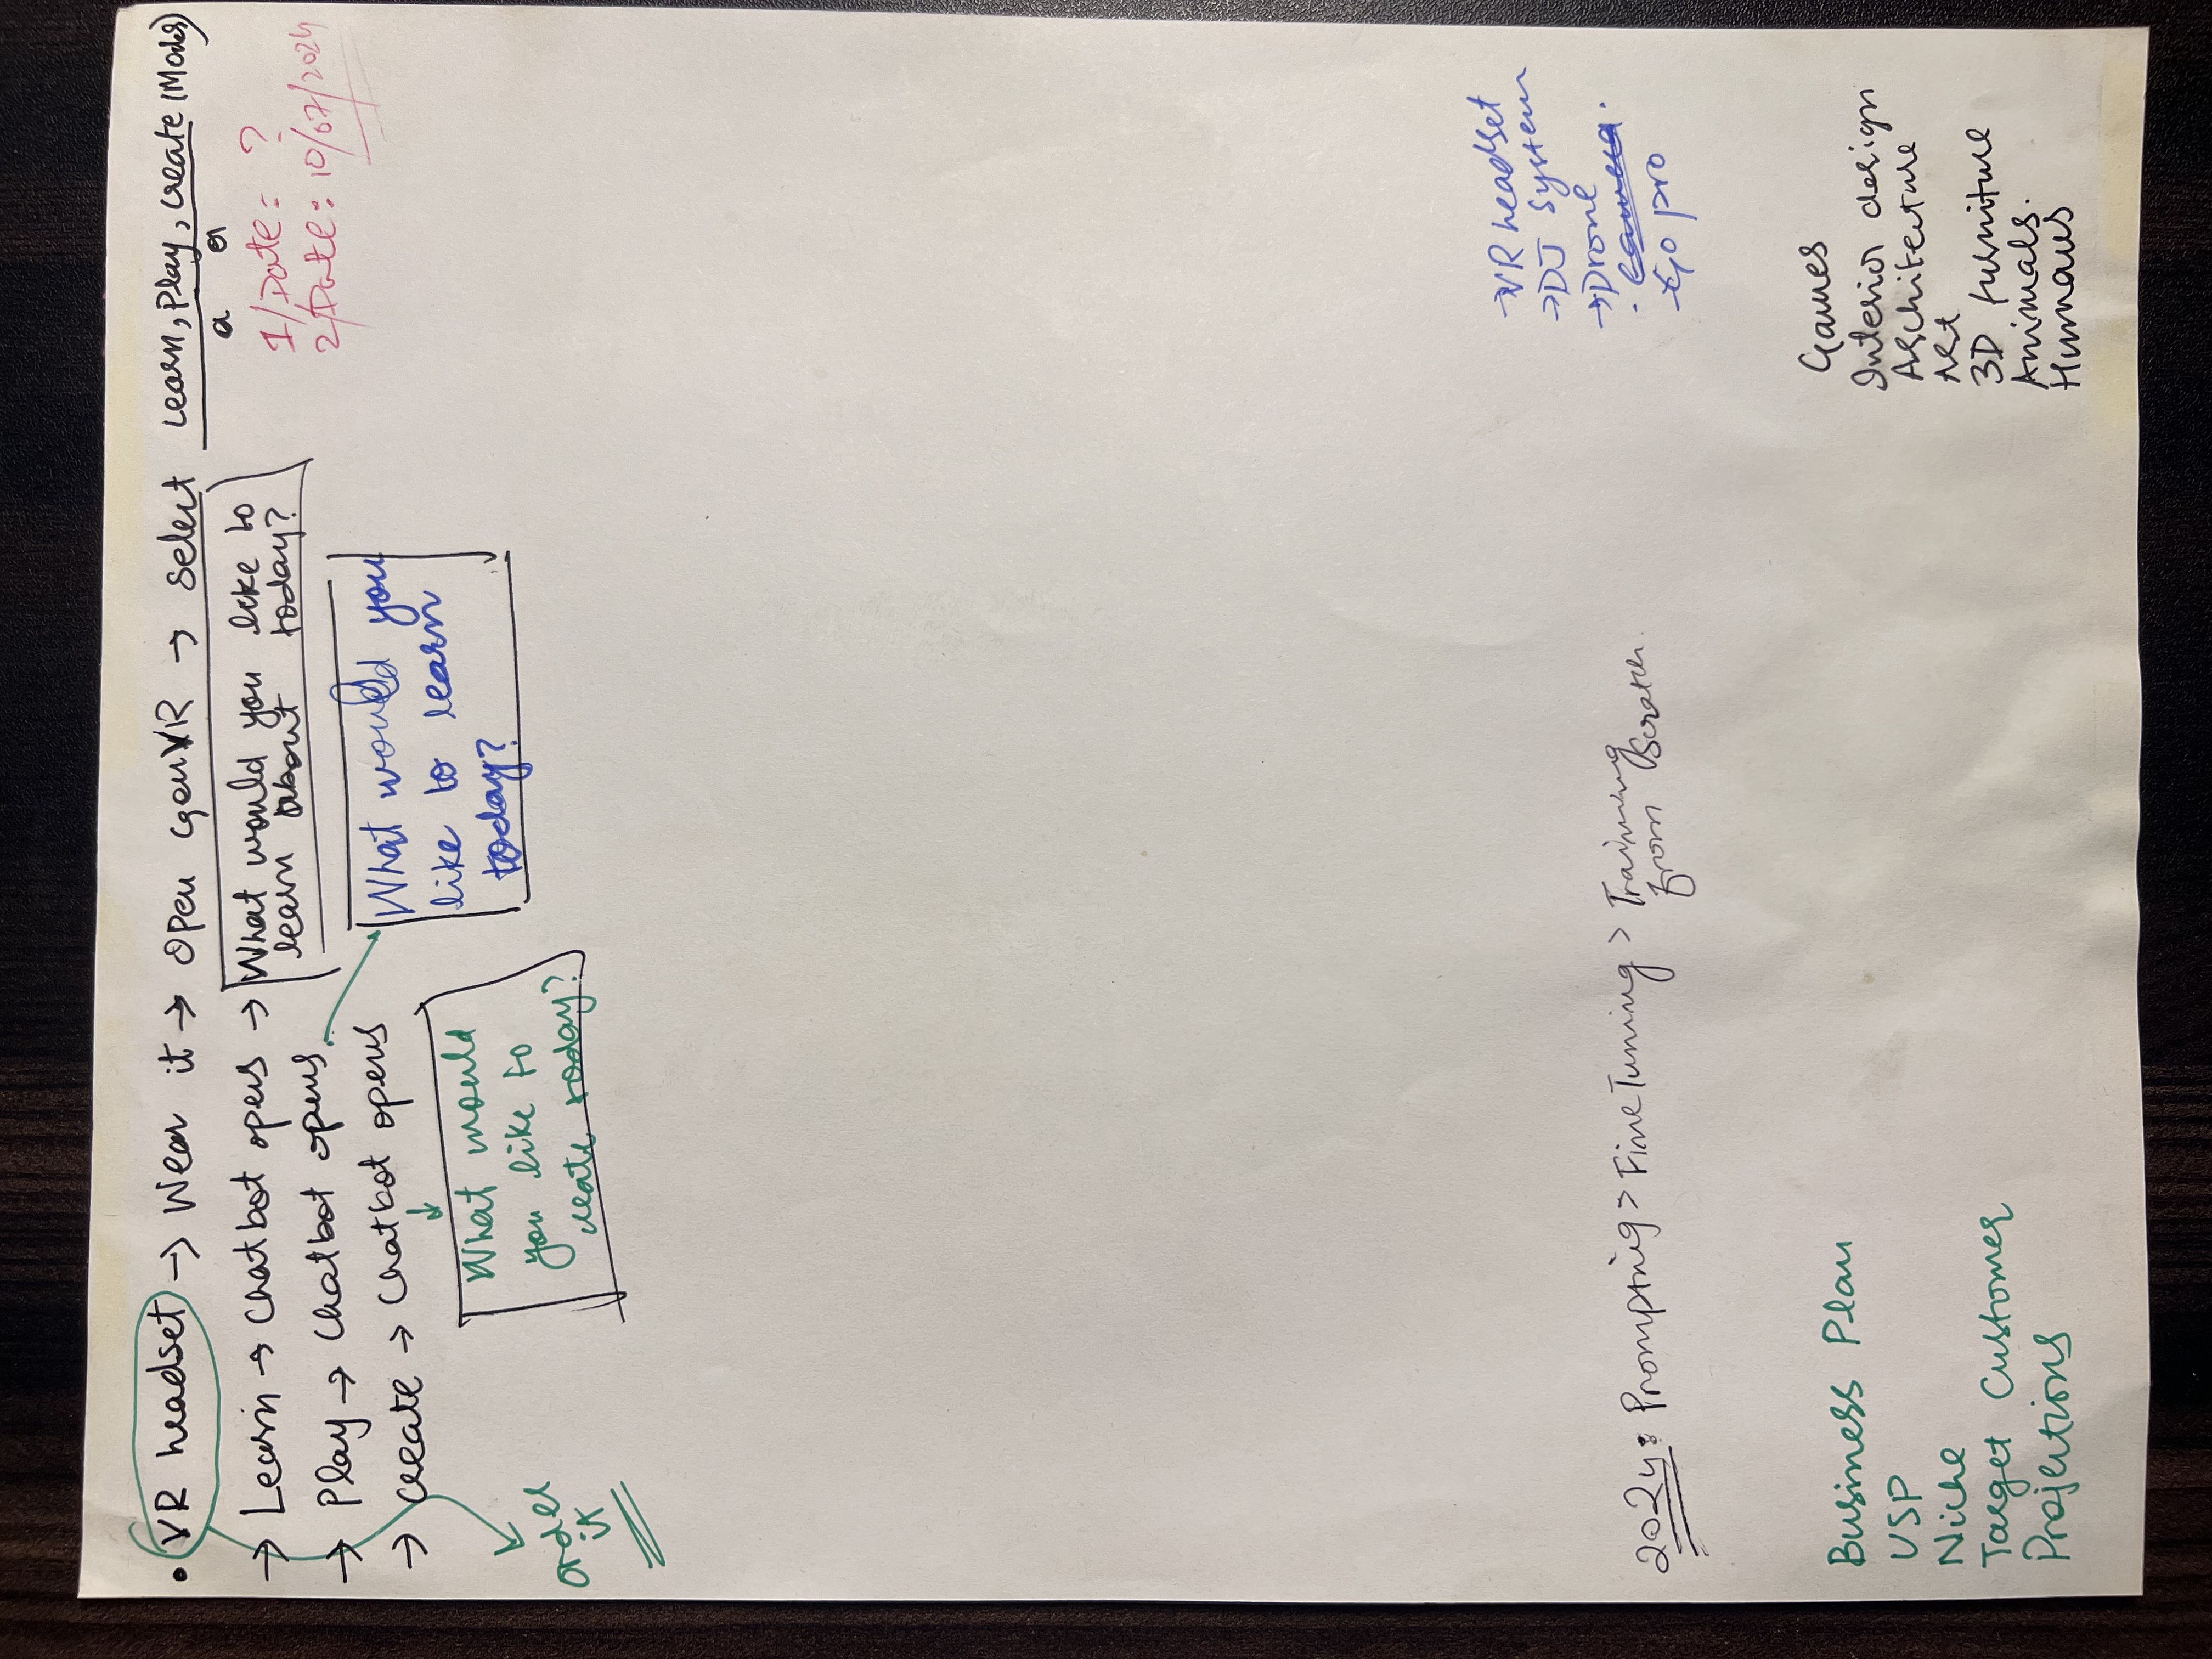 • VR headset → Wear it → open GenVR → select Learn, Play, Create (Modes)
a a
1/Date: ?
2/Date: 10/07/2024
→ Learn → Chatbot opens → What would you like to
learn about today?
→ Play → Chatbot opens
What would you
like to learn
today?
→ Create → Chatbot opens
What would
you like to
create today?
order
it
→ VR headset
→ DJ system
→ Drone
. camera.
Go pro
2024: Prompting > Fine Tuning > Training
from scratch
Business Plan
USP
Niche
Target Customer
Projections
Games
Interior design
Architecture
Art
3D furniture
Animals.
Humans